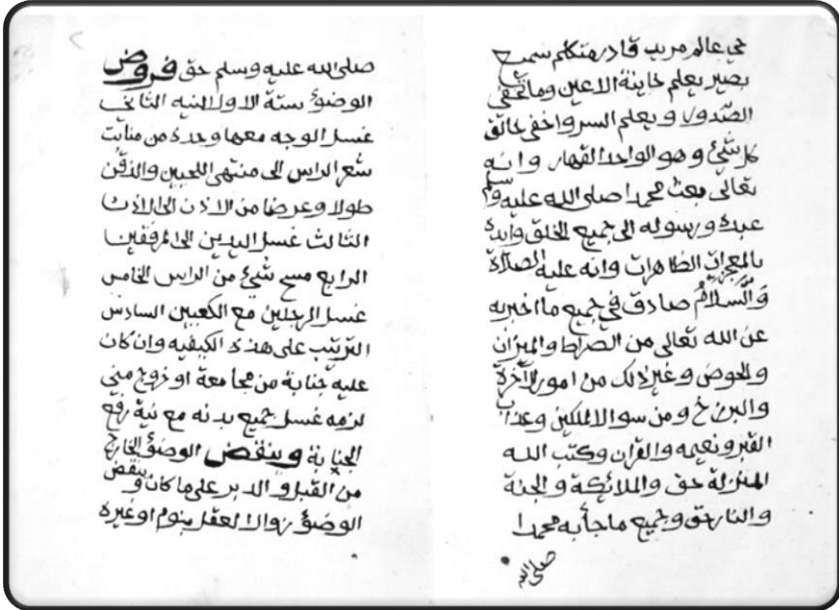 حي عالم مريد قادر متكلم سميع
بصير يعلم خاينة الاعين وما تخفى
الصدور ويعلم السر واخفى خالق
كل شئ وهو الواحد القهار وانه
تعالى بعث محمدا صلى الله عليه وسلم
عبده ورسوله الى جميع الخلق وايده
بالمعجزات الظاهرات وانه عليه الصلاة
والسلام صادق في جميع ما اخبر به
عن الله تعالى من الصراط والميزان
والحوض وغير ذلك من امور الآخرة
والبرزخ ومن سوال الملكين وعذاب
القبر ونعيمه والقران وكتب الله
المنزلة حق والملائكة والجنة
والنار حق وجميع ما جأ به محمدا
صلى الله
صلى الله عليه وسلم حق فروض
الوضؤ ستة الاول النيه الثاني
غسل الوجه معها وحده من منابت
شعر الراس الى منتهى اللحيين والذقن
طولا وعرضا من الاذن الى الاذن
الثالث غسل اليدين الى المرفقين
الرابع مسح شئ من الراس الخامس
غسل الرجلين مع الكعبين السادس
الترتيب على هذه الكيفيه وان كان
عليه جنابة من مجامعة او خروج مني
لزمه غسل جميع بدنه مع نية رفع
الجنابة وينقض الوضؤ الخارج
من القبل والدبر على ما كان وينقض
الوضؤ زوال العقل بنوم او غيره